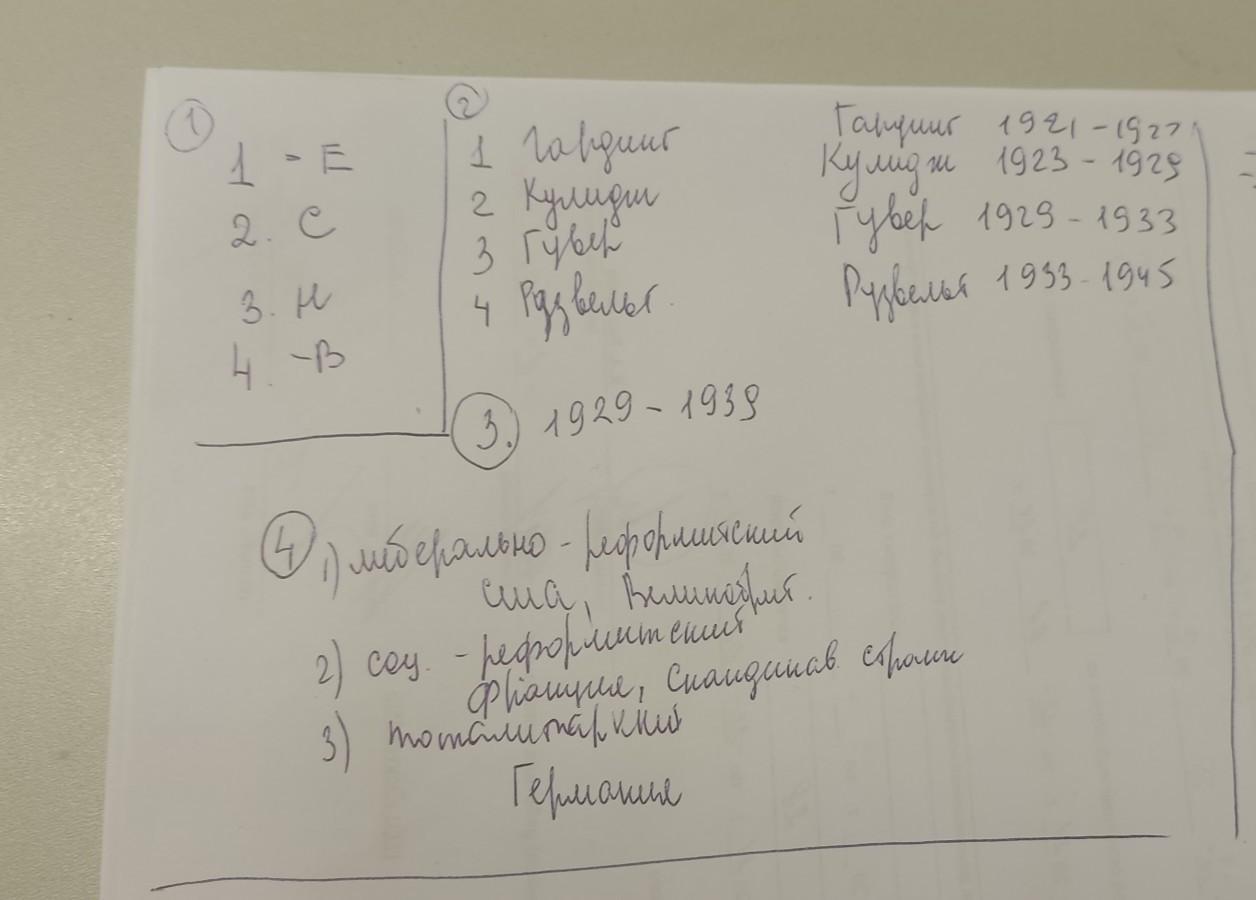 ①
1 - Е
2. С
3. Н
4. -В
②
1 Гардинг
2 Кулидж
3 Гувер
4 Рузвельт.
Гардинг 1921 - 1923
Кулидж 1923 - 1929
Гувер 1929 - 1933
Рузвельт 1933 - 1945
③. 1929 - 1939
④ 1) либерально - реформистский
сша, Великобрит.
2) соц. - реформистский
Франция, Скандинав. страны
3) тоталитарский
Германия